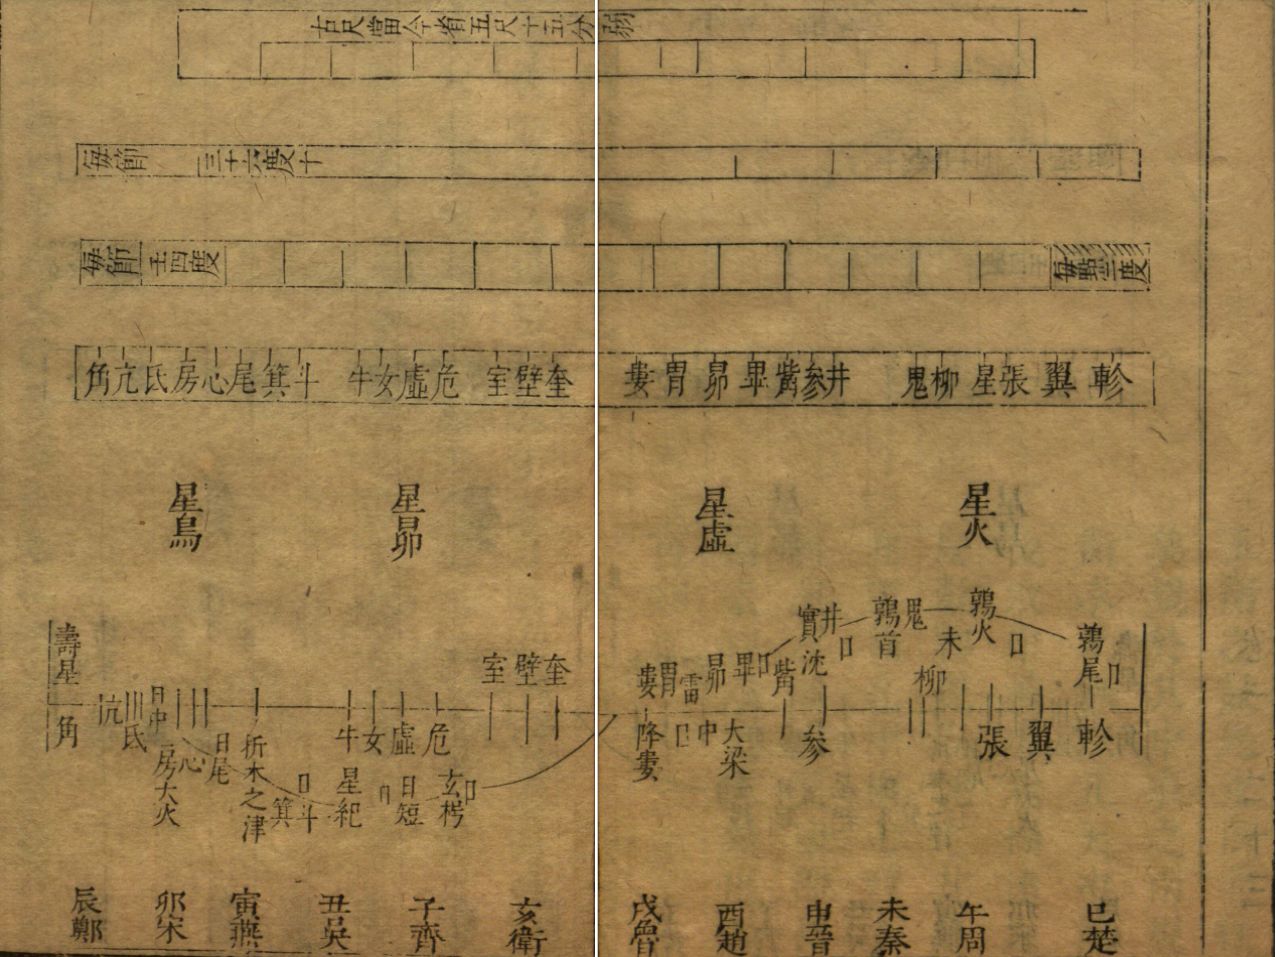 古尺當今省五尺十五分弱
每節 三十六度十
每節 壬四度 每點三度
角亢氐房心尾箕斗牛女虛危室壁奎婁胃昴畢觜參井鬼柳星張翼軫
星鳥 星昴 星虛 星火
壽星 實沈 鶉首 鶉火 鶉尾
井 鬼 未 柳
室壁奎 婁胃雷昴畢 觜
角 亢 氐 日中 房 大火 心 日尾 析木之津 箕 日斗 牛女虛危 星紀 日短 玄枵 降婁 日中 大梁 参 張 翼 軫
辰鄭 卯宋 寅燕 丑吳 子齊 亥衛 戌魯 酉趙 申晉 未秦 午周 巳楚